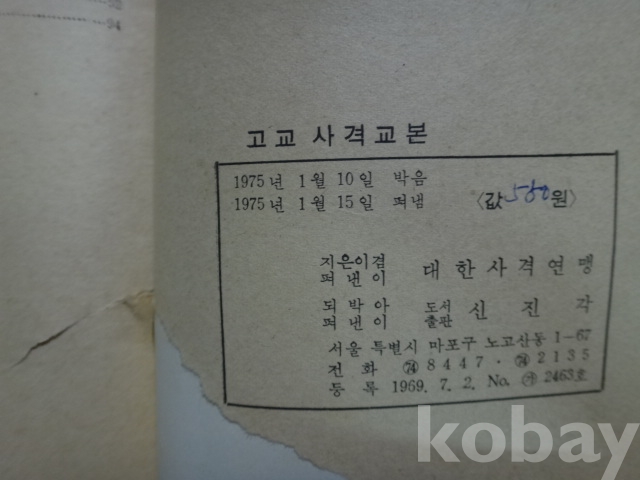 32
34
고교 사격교본
1975년 1월 10일 박음
1975년 1월 15일 펴냄 〈값 500원〉
지은이겸
펴낸이 대한사격연맹
되박아 도서
펴낸이 출판 신진각
서울 특별시 마포구 노고산동 1-67
전화 ㉔8447·㉔2135
등록 1969. 7. 2. No. ㉮ 2463호
kobay